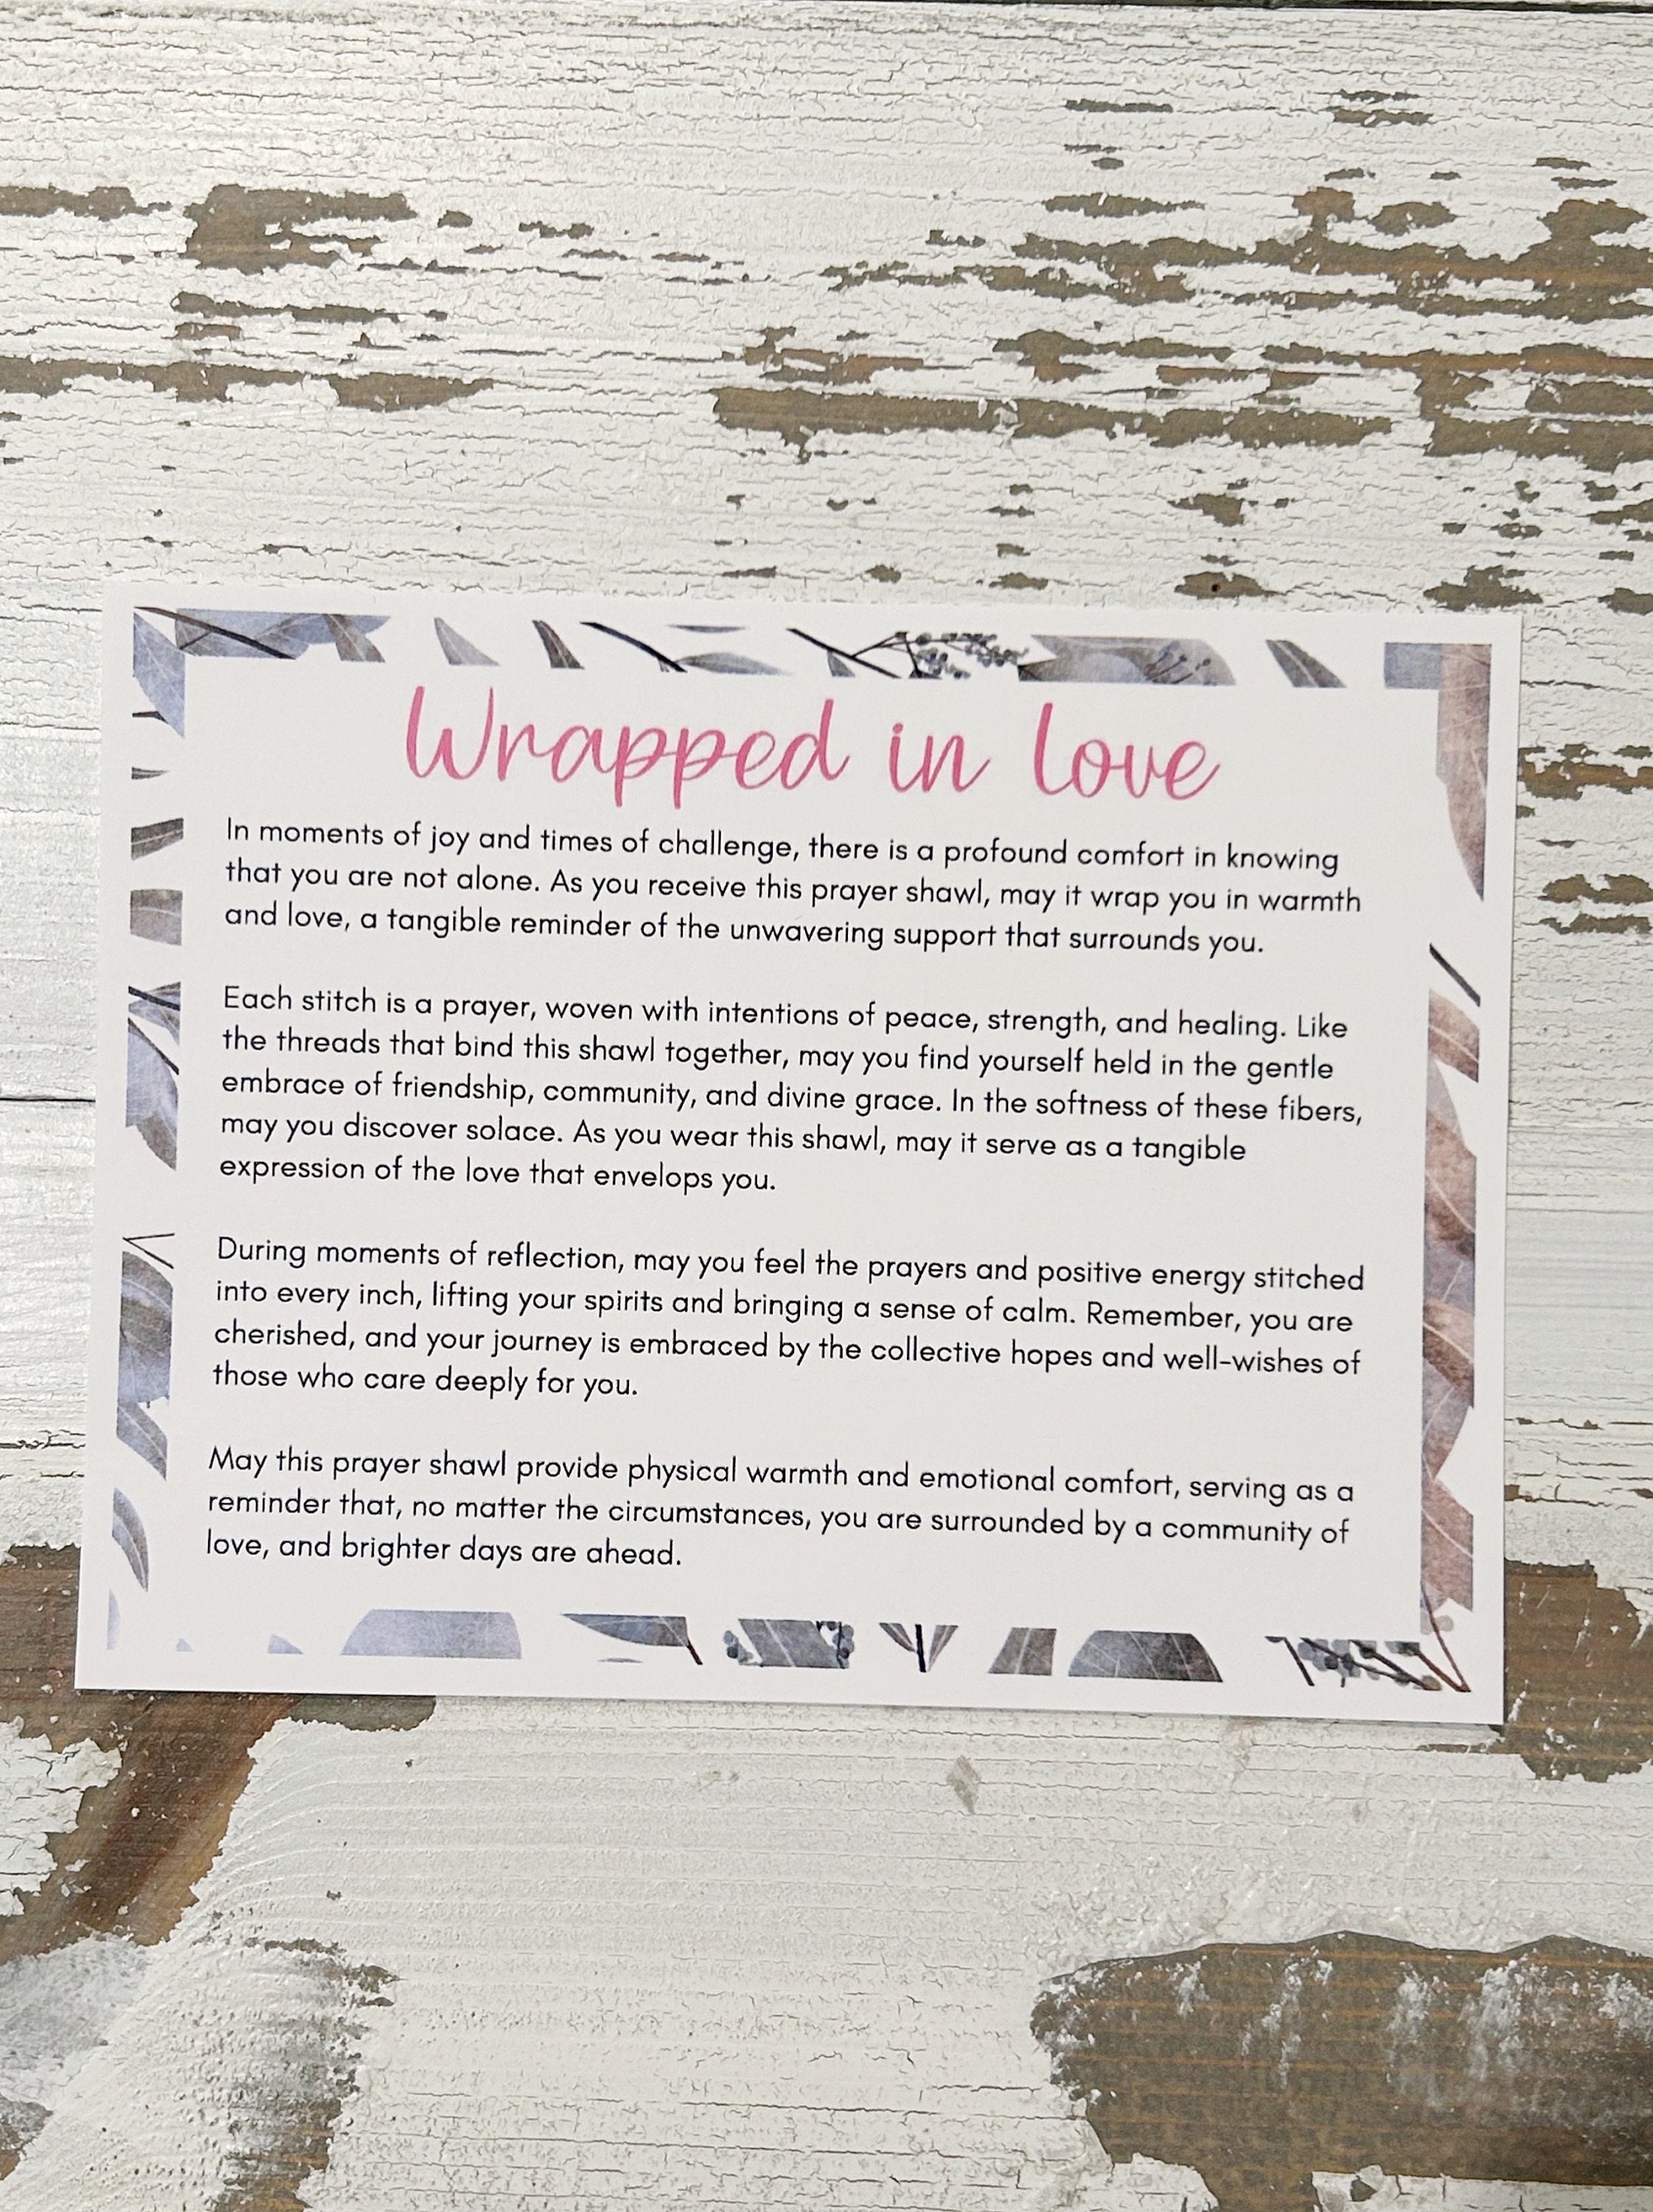 Wrapped in love
In moments of joy and times of challenge, there is a profound comfort in knowing
that you are not alone. As you receive this prayer shawl, may it wrap you in warmth
and love, a tangible reminder of the unwavering support that surrounds you.
Each stitch is a prayer, woven with intentions of peace, strength, and healing. Like
the threads that bind this shawl together, may you find yourself held in the gentle
embrace of friendship, community, and divine grace. In the softness of these fibers,
may you discover solace. As you wear this shawl, may it serve as a tangible
expression of the love that envelops you.
During moments of reflection, may you feel the prayers and positive energy stitched
into every inch, lifting your spirits and bringing a sense of calm. Remember, you are
cherished, and your journey is embraced by the collective hopes and well-wishes of
those who care deeply for you.
May this prayer shawl provide physical warmth and emotional comfort, serving as a
reminder that, no matter the circumstances, you are surrounded by a community of
love, and brighter days are ahead.